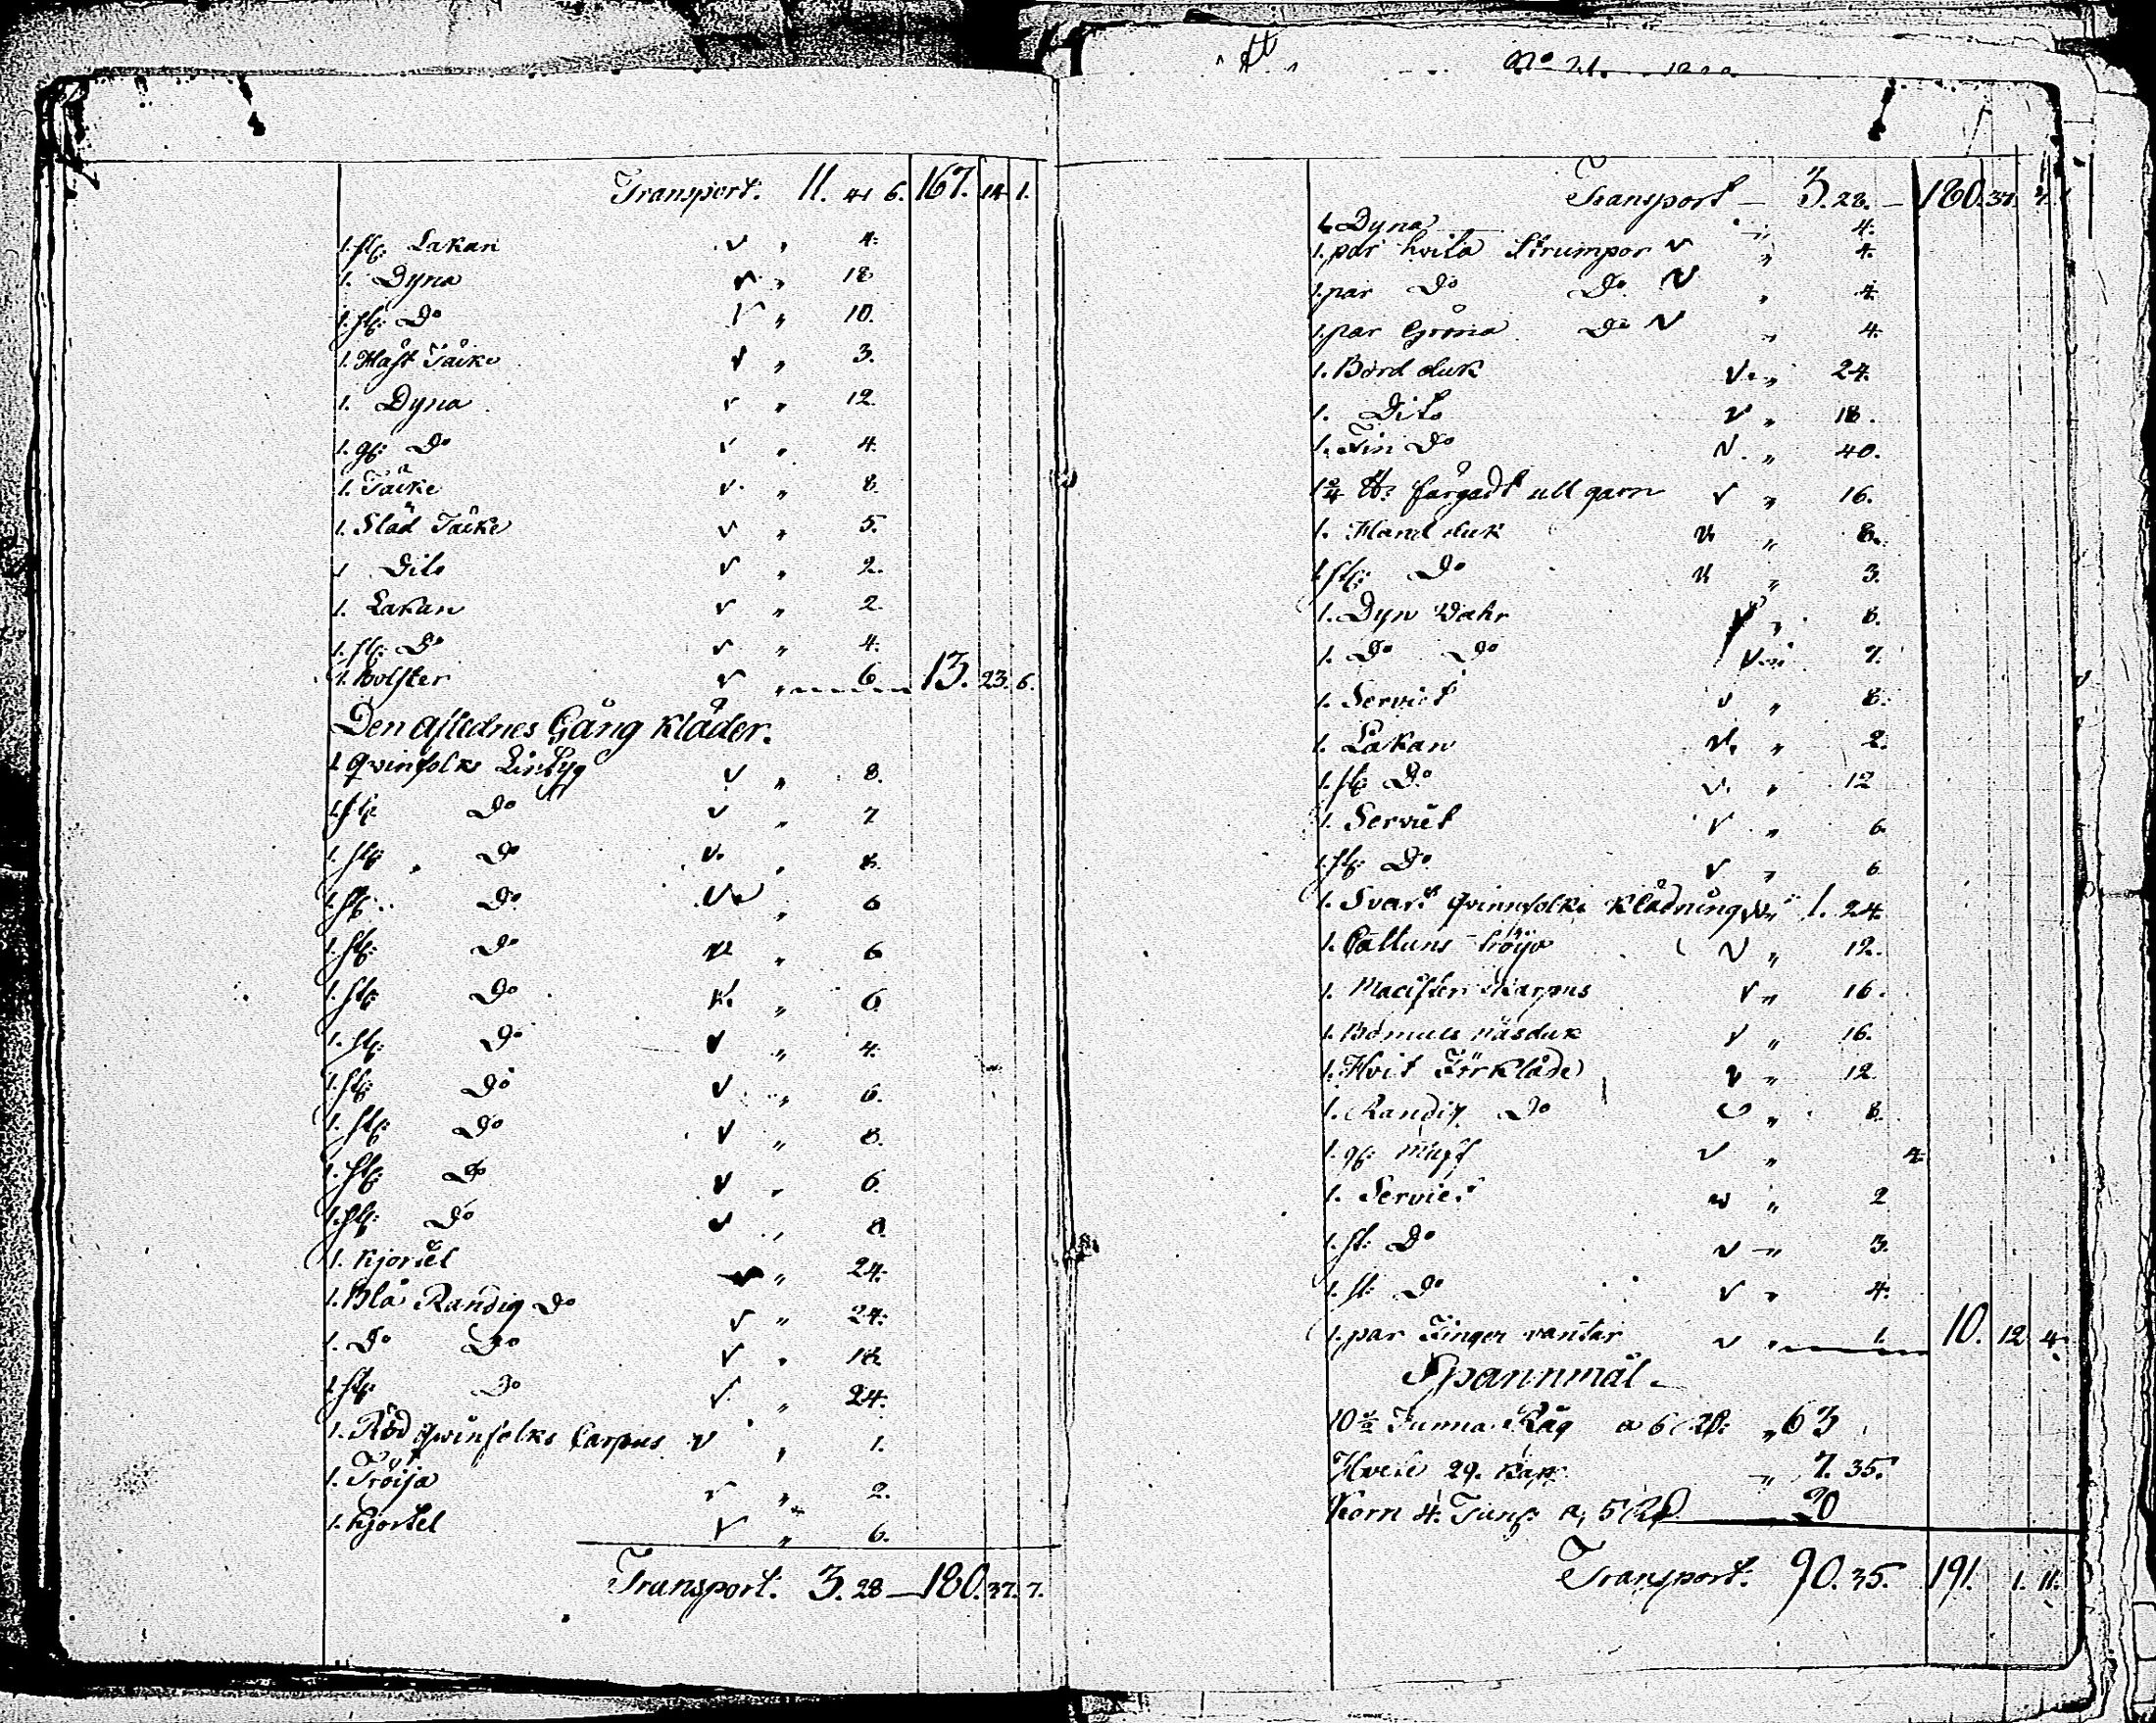 Transport. 11. 41 6. 167. 14 1.
1. st: Lakan v „ 4.
1. Dyna v „ 18
1. st: Do v „ 10.
1. Häst Täcke v „ 3.
1. Dyna v „ 12.
1. gl: Do v „ 4.
1. Täcke v „ 8.
1. Släd Täcke v „ 5.
1 Dito v „ 2.
1. Lakan v „ 2.
1. st: Do v „ 4.
1. Bolster v „ 6 13. 23. 6.
Den aflednes Gång kläder.
1 Qvinfolks Lintyg v „ 8.
1. st: Do v „ 7
1. st: Do v. „ 8.
1. st: Do „ 6
1. st: Do v „ 6
1. st: Do v. „ 6
1. st: Do v „ 4.
1. st: Do v „ 6.
1. st: Do v „ 8.
1. st: Do v „ 6.
1. st: Do v „ 8
1. Kjortel v „ 24.
1. Blå Randig Do v „ 24.
1. Do Do v „ 18
1 st: Do v. „ 24.
1. Röd Qwinfolks Carpus v „ 1.
1. Tröija v „ 2.
1. Kjortel v „ 6.
Transport. 3. 28 — 180. 37. 7.
No 21.
Transport — 3. 28. — 180. 37 7.
1. Dyna „ 4.
1. par hvita Strumpor v „ 4.
1. par Do Do v „ 4.
1. par Gröna Do v „ 4.
1. Bord duk v. „ 24.
1. Dito v „ 18.
1. Fin Do v. „ 40.
färgadt ull garn v „ 16.
1. Hand duk v „ 8.
1. st: Do v „ 3.
1. Dyn Wahr v „ 8.
1. Do Do v „ 7.
1. Serviet v „ 8.
1. Lakan v. „ 2.
1. st: Do v. „ 12
1. Serviet v „ 6
1. st: Do v „ 6
1. Svart Qvinnfolks Klädning v „ 1. 24.
1. Cattuns Tröja v „ 12.
1. v „ 16.
1. Bomuls näsduk v „ 16.
1. Hvit Förkläde v „ 12.
1. Randig Do v „ 8.
1. gl: Muff v „ 4.
1. Serviet v „ 2
1. st: Do v „ 3.
1. st: Do v „ 4.
1. par Finger vantar v „ 1. 10. 12 4.
Spannmål.
10½ Tunna Råg a 6 Rd: „ 63
Hvete 29. Kapp „ 7. 35.
Korn 4. Tunf: a, 5 Rd 20
Transport. 90. 35. 191. 1. 11.